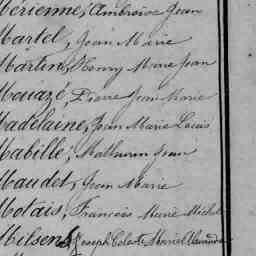 Merienne, Ambroise Jean
Martel, Jean Marie
Martin, Henry Marie Jean
Mouazé, Pierre Jean Marie
Madelaine, Jean Marie Louis
Mabille, Mathurin Jean
Maudet, Jean Marie
Motais, François Marie Michel
Milsent, Joseph Céleste Marie Alexandre